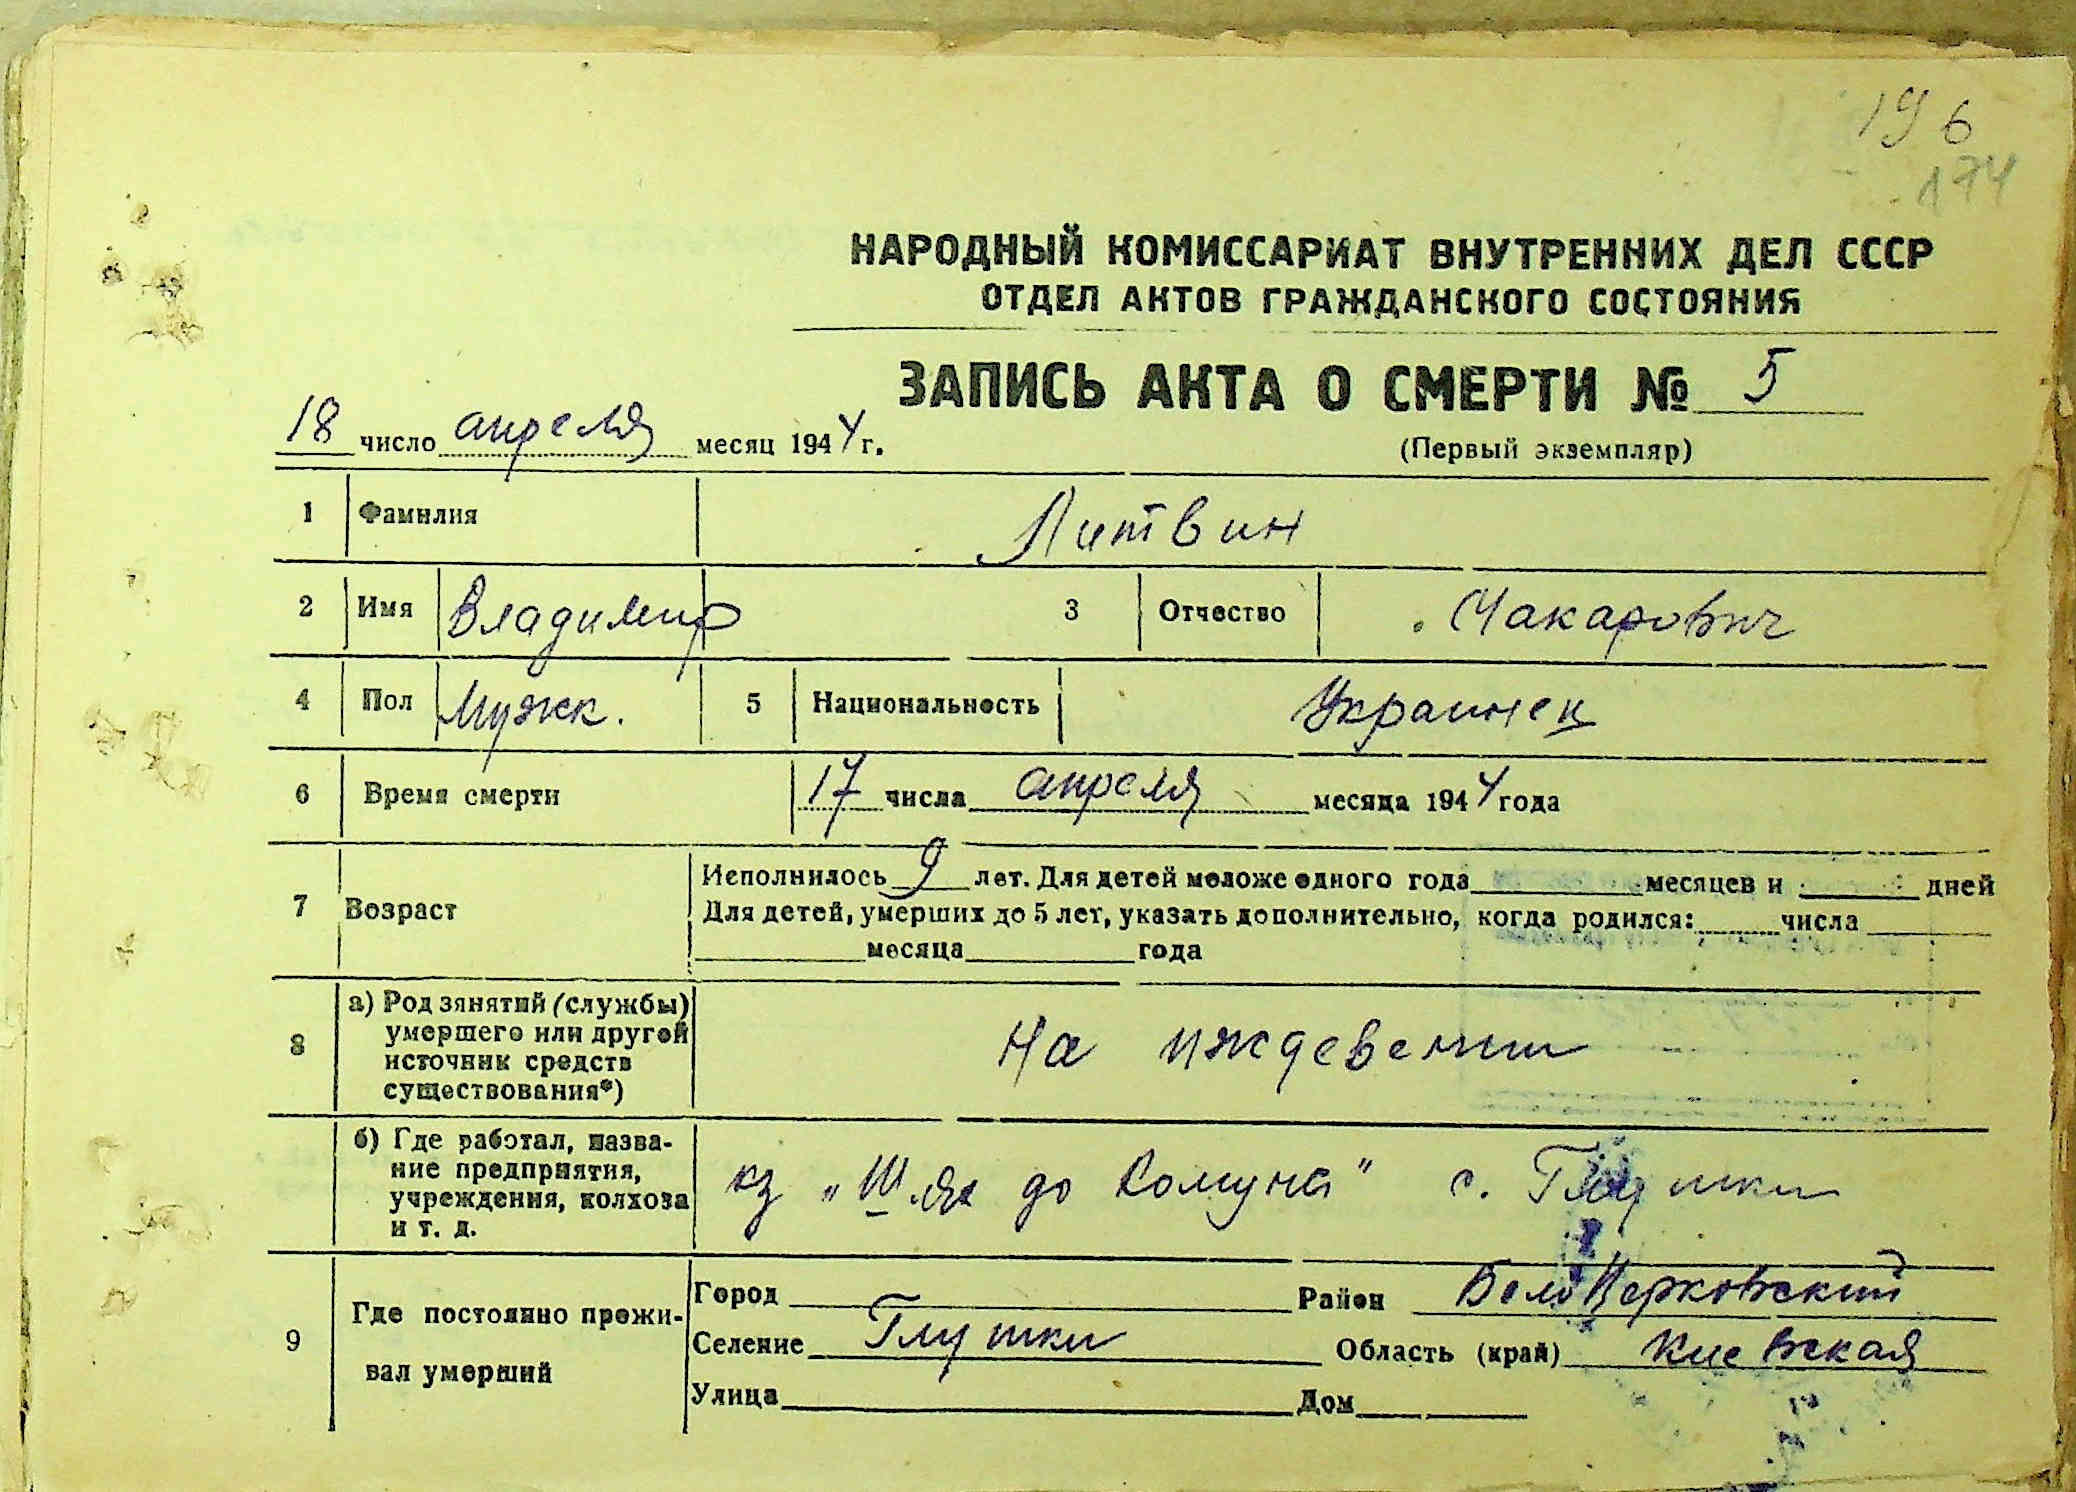 196
174
НАРОДНЫЙ КОМИССАРИАТ ВНУТРЕННИХ ДЕЛ СССР
ОТДЕЛ АКТОВ ГРАЖДАНСКОГО СОСТОЯНИЯ
ЗАПИСЬ АКТА О СМЕРТИ № 5
18 число апреля месяц 1944 г.
(Первый экземпляр)
1 Фамилия Литвин
2 Имя Владимир 3 Отчество Макарович
4 Пол Мужк. 5 Национальность Украинец
6 Время смерти 17 числа апреля месяца 1944 года
7 Возраст Исполнилось 9 лет. Для детей моложе одного года месяцев и дней
Для детей, умерших до 5 лет, указать дополнительно, когда родился: числа
месяца года
8 а) Род занятий (службы)
умершего или другой
источник средств
существования*)
На иждевении
б) Где работал, назва-
ние предприятия,
учреждения, колхоза
и т. д.
кз „Шлях до Комуна" с. Глушки
9 Где постоянно прожи-
вал умерший
Город Район БелоЦерковский
Селение Глушки Область (край) Киевская
Улица Дом